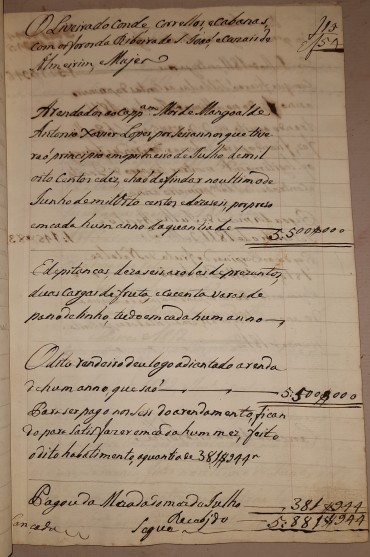 O Liveira do Conde, Correllos, e Cabanas,
com os foros da Ribeira de S. João, e Canas de
Almeirim, Mujer
Arendados ao Capp.am Mor de Mangoalde
Antonio Xavier Lopes, por seis annos que tive
raõ principio em primeiro de Julho de mil
oito centos e dez, e haõ de findar no ultimo de
Junho de mil oito centos e dezaseis, por preso
em cada hum anno da quantia de 5:500$000
E de pitenças, dezaseis arobas de prezuntos,
duas Cargas de fruta, e secenta varas de
pano de linho, tudo em cada hum anno
O dito rendeiro deu logo adiantado a renda
de hum anno, que saõ 5:500$000
Para ser pago nos seis do arendamento, fican
do para satisfazer em cada hum mez, feito
o dito habatimento, a quantia de 381$944 r
Pagou da Mezada do mez de Julho 381$944
Segue Recebido 5:881$944